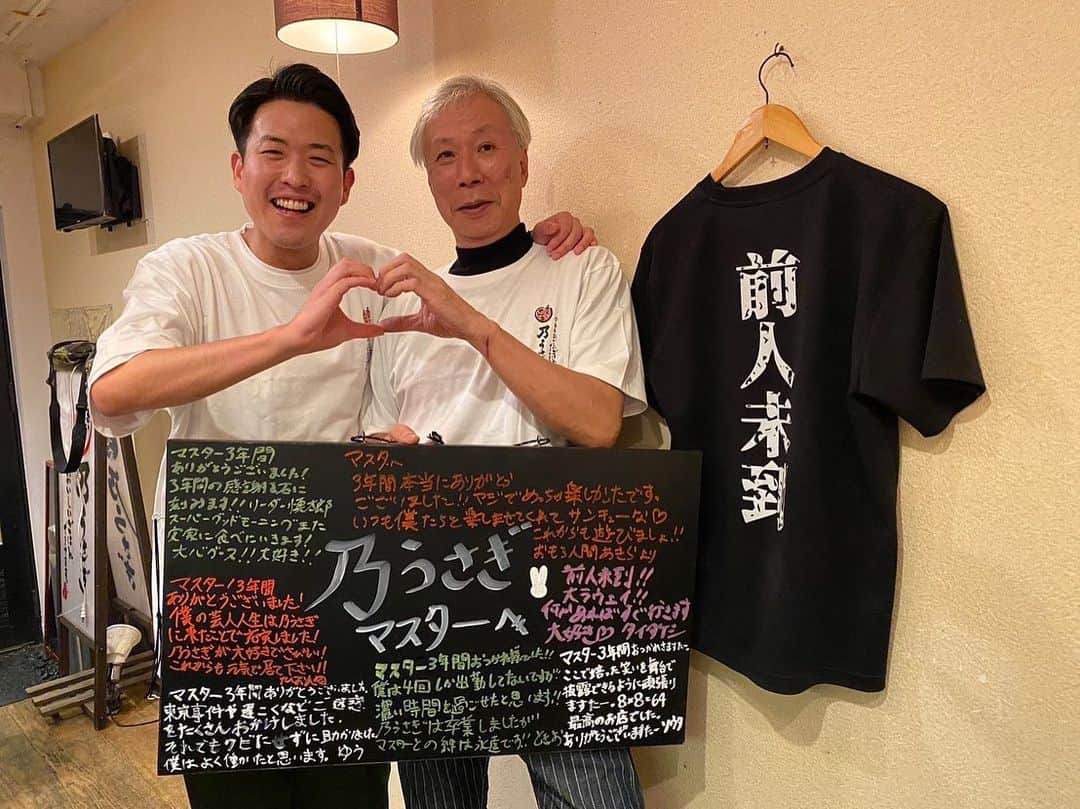 前人未到
乃うさ
マスター3年間
ありがとうございました!
3年間の感謝を石に
刻みます!リーダー
スーパーグッドモーニングまた
実家に食べにいきます!
大好き!!
マスターへ
3年間本当にありがとう
ございました!!マジでめっちゃ楽しかたです。
いつも僕たちと楽しませてくれてサンキューな♡
これからも遊びましょ!!
おもろ人間あきらより
乃うさぎ
マスターへ
前人未到!!
大ラウェイ!!
何かあればすぐ行きます
大好き♡タイダイン
マスター!3年間
ありがとうございました!
僕の芸人人生は乃うさぎ
に来たことで
乃うさぎが大好きです
これからも元気で居て下さい!!
マスター3年間ありがとうございました
東京事件や遅こくなどご迷惑
をたくさんおかけしました。
それでもクビにせずに助かりました
僕はよく働かたと思います。ゆう
マスター3年間おつかれ様でした!!
僕は4回しか出勤してないですが
濃い時間を過ごせたと思います!!
乃うさぎは卒業しましたが
マスターとの絆は永遠です!!
マスター3年間おつかれさまでした
ここで培った笑いを舞台で
披露できるように頑張り
ます 8×8=64
最高のお店でした。
ありがとうございました